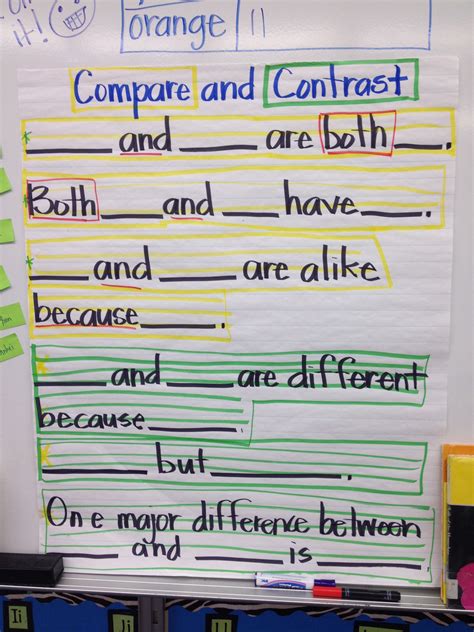 it!
orange ||
Compare and Contrast
____ and ____ are both ____.
Both ____ and ____ have ____.
____ and ____ are alike
because ____.
____ and ____ are different
because ____.
____ but ____.
One major difference between
____ and ____ is ____.
Ii
Jj
Ll